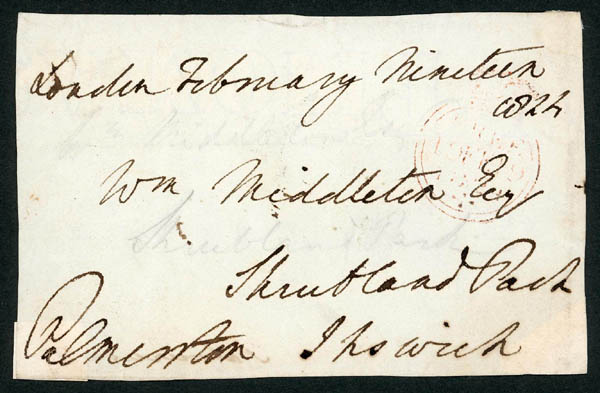 London February Nineteen
1822
Wm Middleton Esq
Shrubland Park
Palmerston Ipswich